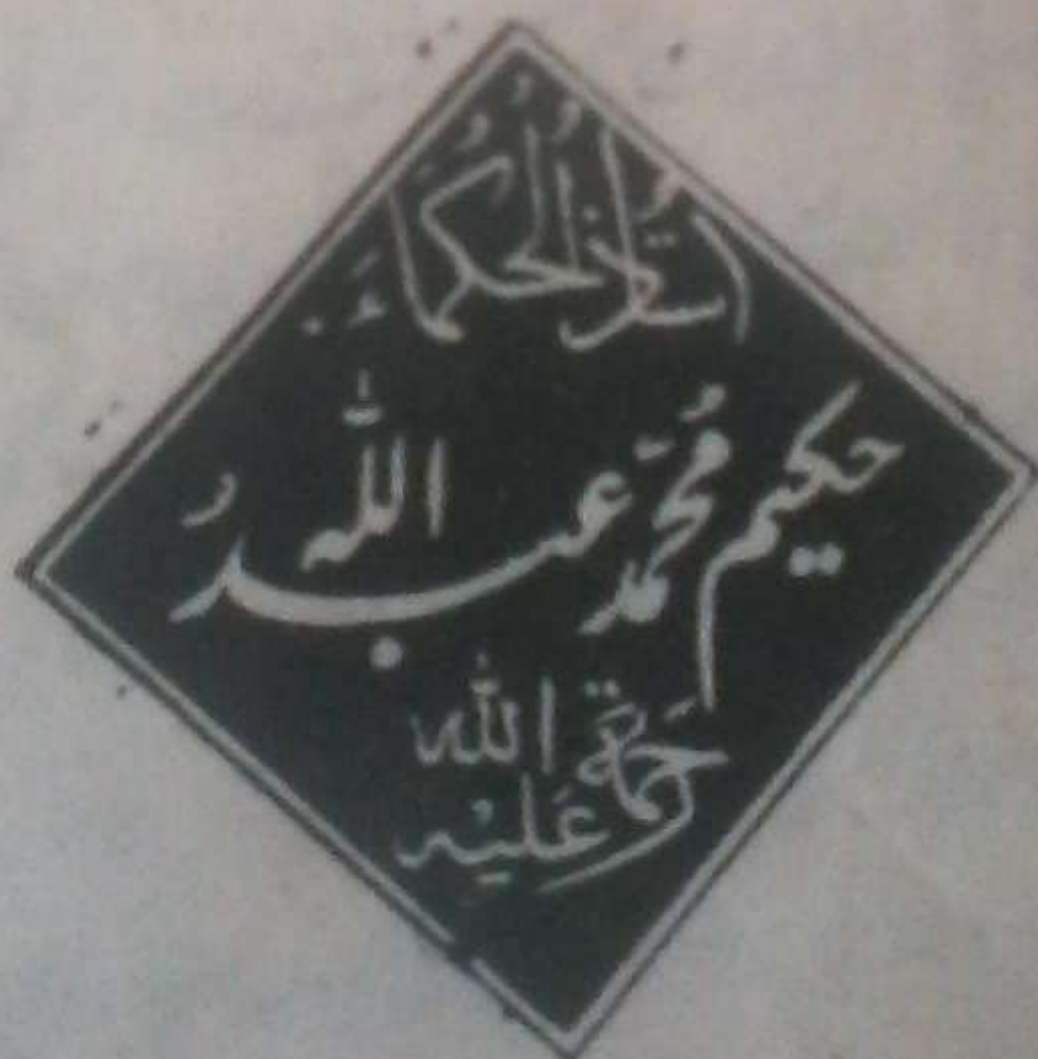 استاذُ الحُكماَء
حکیم مُحمّد عبدُ اللہ
رَحمۃ اللہ
عَلیْہ